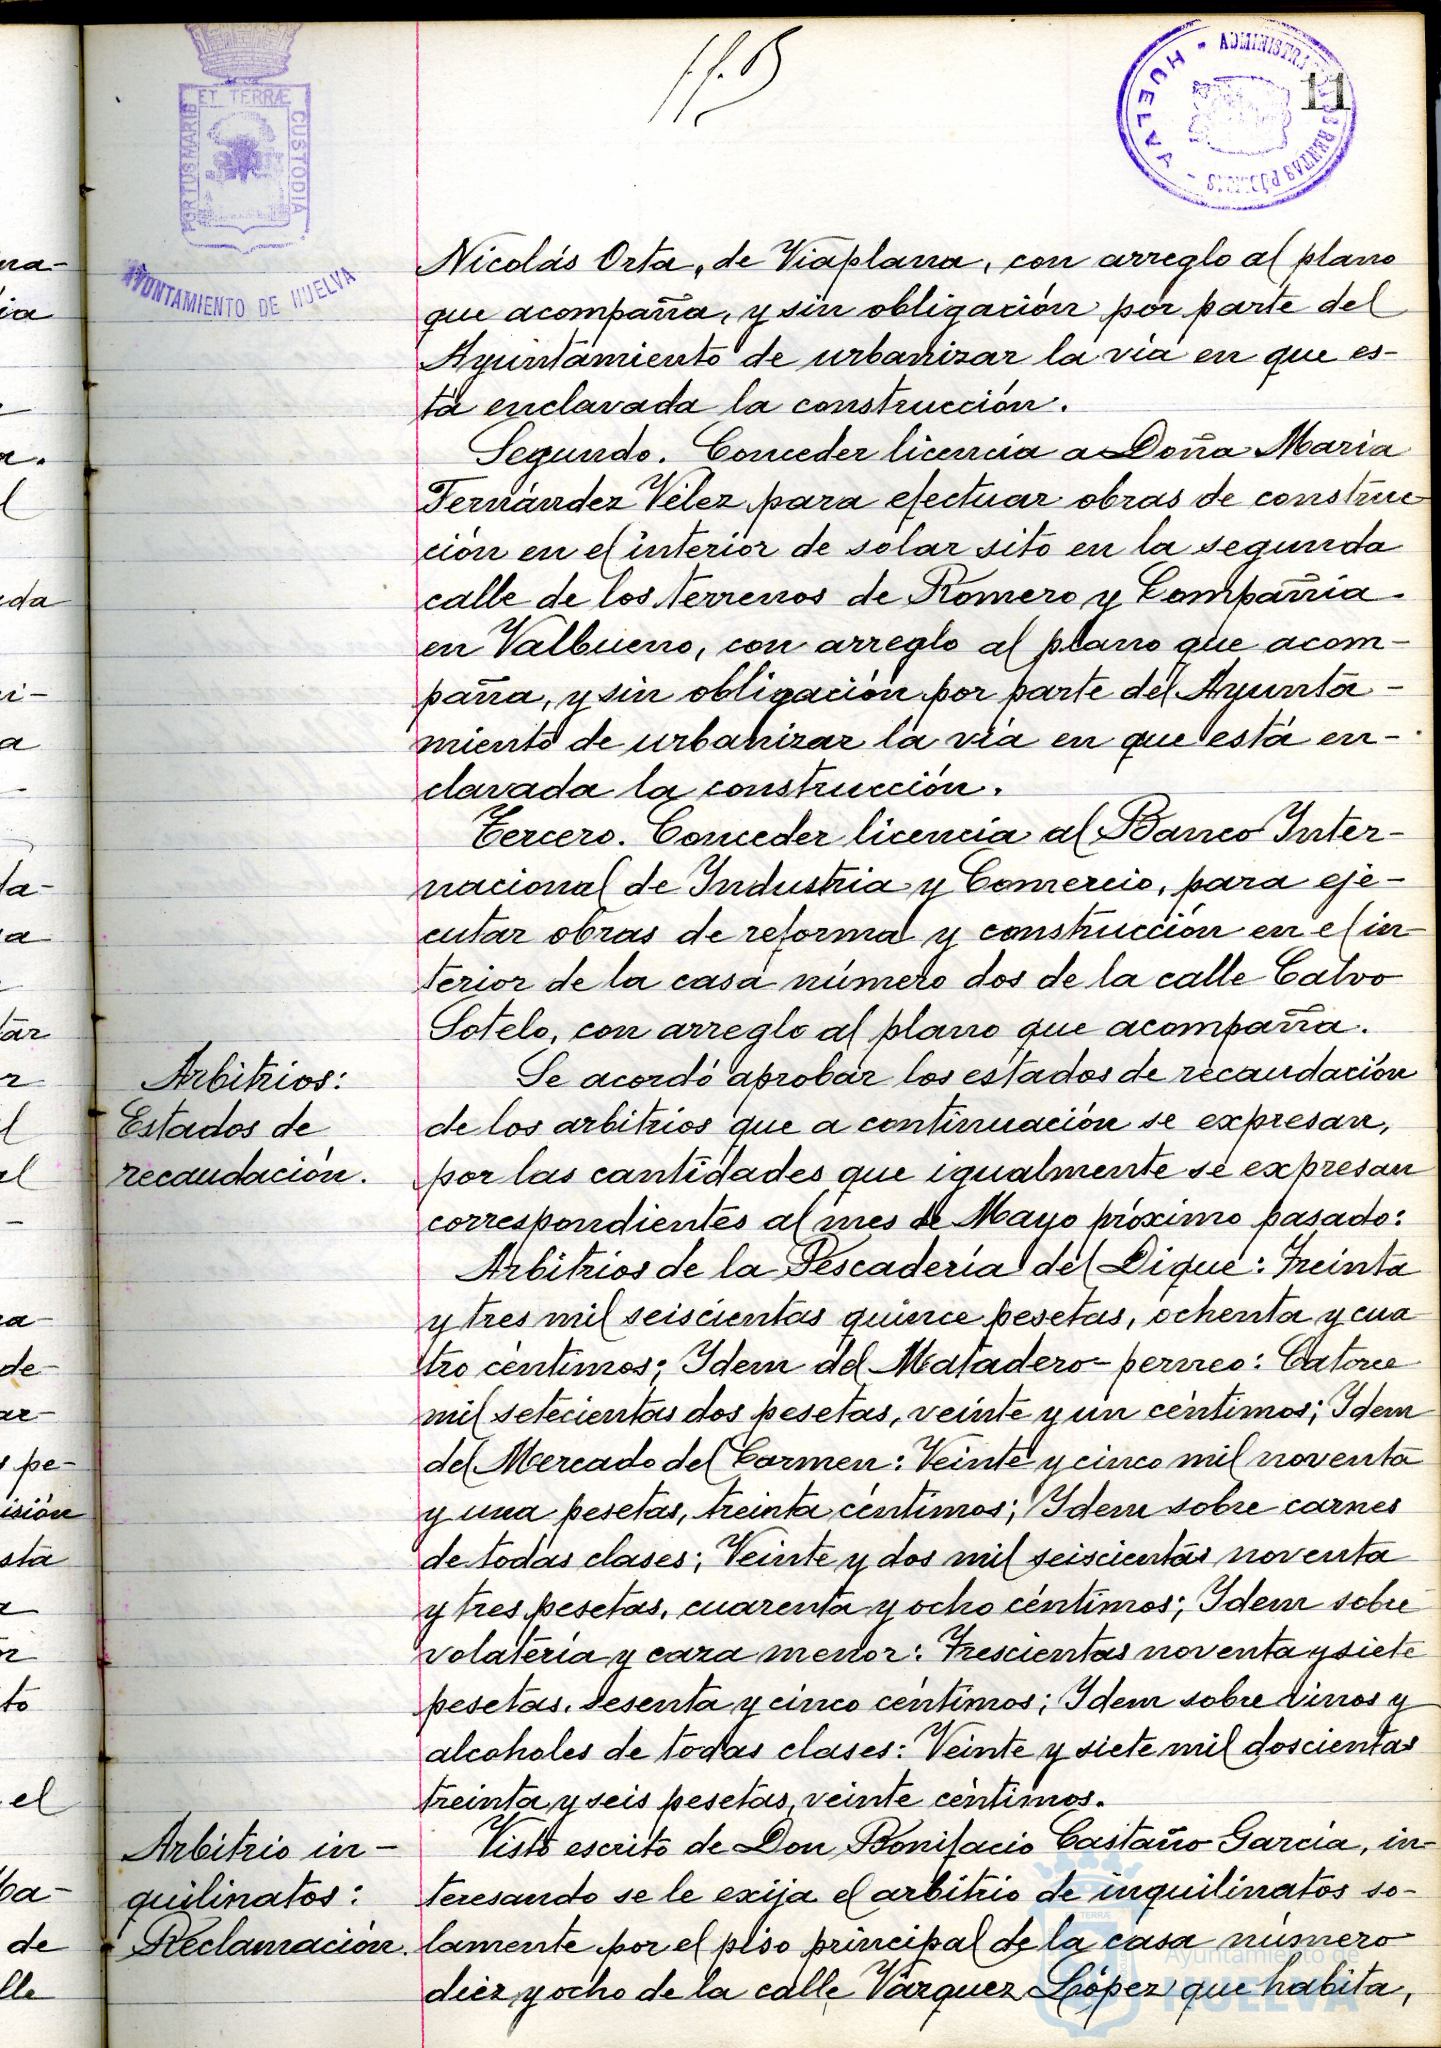 ET TERRÆ
PORTUS MARIS
CUSTODIA
AYUNTAMIENTO DE HUELVA
HUELVA
11
Nicolás Orta, de Viaplana, con arreglo al plano
que acompaña, y sin obligación por parte del
Ayuntamiento de urbanizar la vía en que es-
tá enclavada la construcción.
Segundo. Conceder licencia a Doña María
Fernández Vélez para efectuar obras de construc
ción en el interior de solar sito en la segunda
calle de los terrenos de Romero y Compañía
en Valbueno, con arreglo al plano que acom-
paña, y sin obligación por parte del Ayunta-
miento de urbanizar la vía en que está en-
clavada la construcción.
Tercero. Conceder licencia al Banco Inter-
nacional de Industria y Comercio, para eje-
cutar obras de reforma y construcción en el in-
terior de la casa número dos de la calle Calvo
Sotelo, con arreglo al plano que acompaña.
Arbitrios:
Estados de
recaudación.
Se acordó aprobar los estados de recaudación
de los arbitrios que a continuación se expresan,
por las cantidades que igualmente se expresan
correspondientes al mes de Mayo próximo pasado:
Arbitrios de la Pescadería del Dique: Treinta
y tres mil seiscientas quince pesetas, ochenta y cua
tro céntimos; Idem del Matadero-perneo: Catorce
mil setecientas dos pesetas, veinte y un céntimos; Idem
del Mercado del Carmen: Veinte y cinco mil noventa
y una pesetas, treinta céntimos; Idem sobre carnes
de todas clases; Veinte y dos mil seiscientas noventa
y tres pesetas, cuarenta y ocho céntimos; Idem sobre
volatería y caza menor: Trescientas noventa y siete
pesetas, sesenta y cinco céntimos; Idem sobre vinos y
alcoholes de todas clases: Veinte y siete mil doscientas
treinta y seis pesetas, veinte céntimos.
Arbitrio in-
quilinatos:
Reclamación.
Visto escrito de Don Bonifacio Castaño García, in-
teresando se le exija el arbitrio de inquilinatos so-
lamente por el piso principal de la casa número
diez y ocho de la calle Vázquez López que habita,
Ayuntamiento de
HUELVA